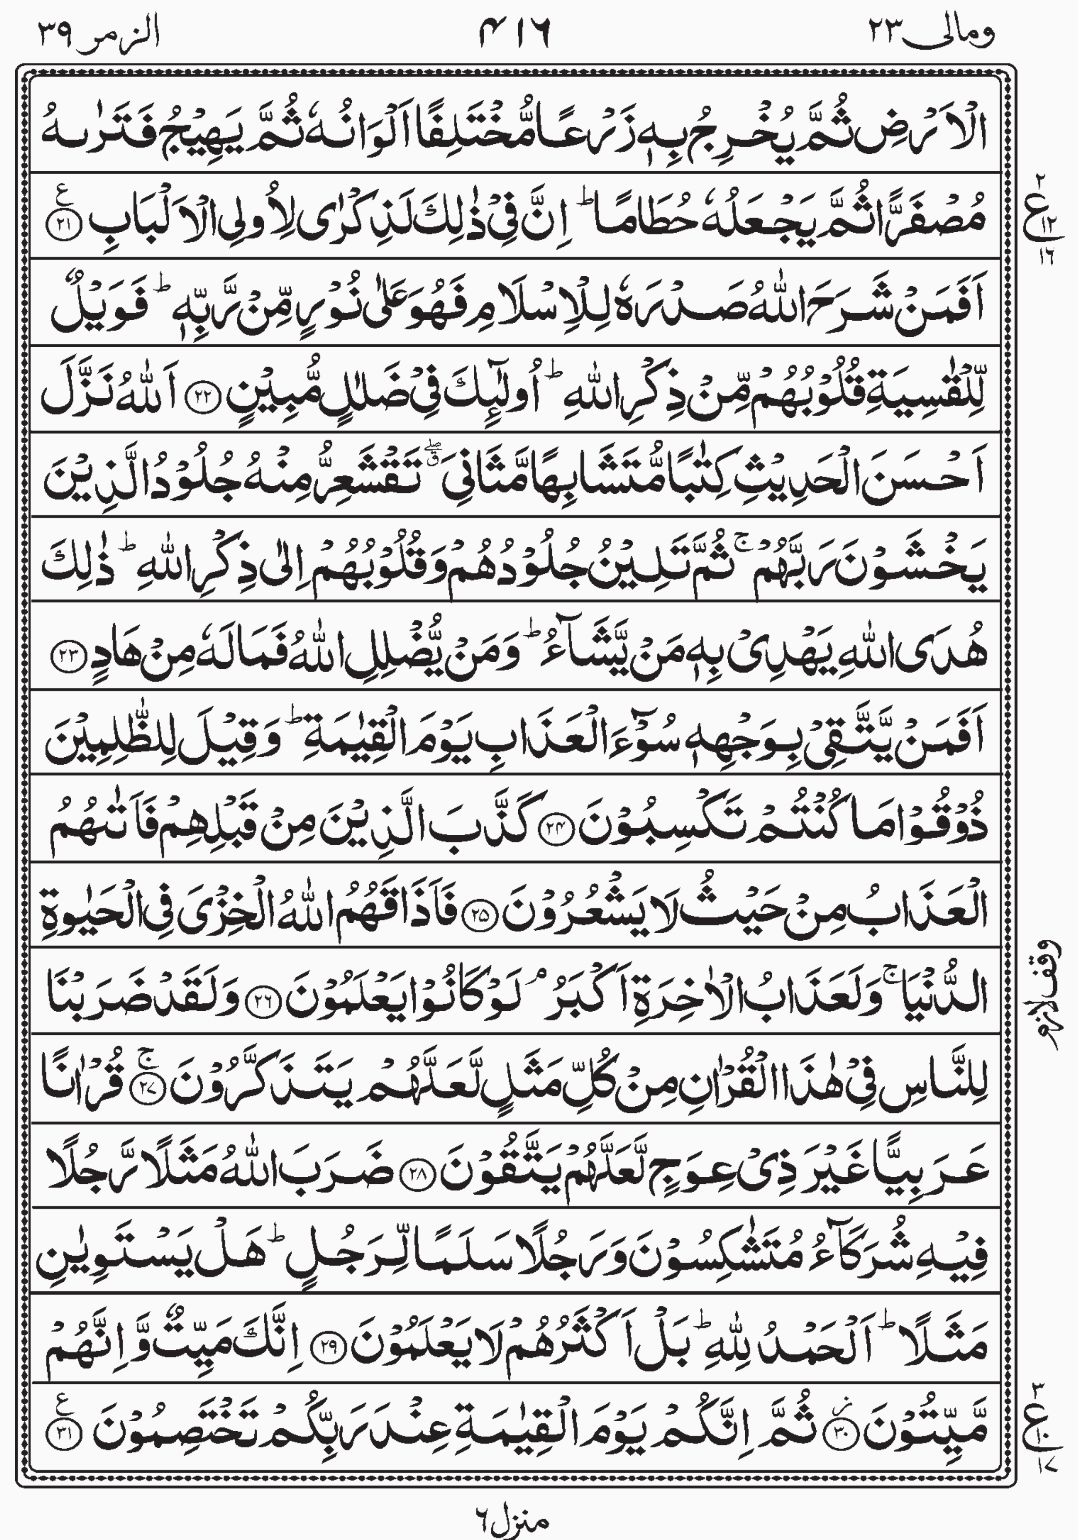 ومالی ٢٣
٤١٦
الزمر ٣٩
الْاَرْضِ ثُمَّ يُخْرِجُ بِهٖ زَرْعًا مُّخْتَلِفًا اَلْوَانُهٗ ثُمَّ يَهِيْجُ فَتَرٰىهُ
مُصْفَرًّا ثُمَّ يَجْعَلُهٗ حُطَامًا ؕ اِنَّ فِيْ ذٰلِكَ لَذِكْرٰى لِاُولِى الْاَلْبَابِ ࣖ ٢١
اَفَمَنْ شَرَحَ اللّٰهُ صَدْرَهٗ لِلْاِسْلَامِ فَهُوَ عَلٰى نُوْرٍ مِّنْ رَّبِّهٖ ؕ فَوَيْلٌ
لِّلْقٰسِيَةِ قُلُوْبُهُمْ مِّنْ ذِكْرِ اللّٰهِ ؕ اُولٰٓئِكَ فِيْ ضَلٰلٍ مُّبِيْنٍ ٢٢ اَللّٰهُ نَزَّلَ
اَحْسَنَ الْحَدِيْثِ كِتٰبًا مُّتَشَابِهًا مَّثَانِيَ ۖۗ تَقْشَعِرُّ مِنْهُ جُلُوْدُ الَّذِيْنَ
يَخْشَوْنَ رَبَّهُمْ ۚ ثُمَّ تَلِيْنُ جُلُوْدُهُمْ وَقُلُوْبُهُمْ اِلٰى ذِكْرِ اللّٰهِ ؕ ذٰلِكَ
هُدَى اللّٰهِ يَهْدِىْ بِهٖ مَنْ يَّشَآءُ ؕ وَمَنْ يُّضْلِلِ اللّٰهُ فَمَا لَهٗ مِنْ هَادٍ ٢٣
اَفَمَنْ يَّتَّقِىْ بِوَجْهِهٖ سُوْٓءَ الْعَذَابِ يَوْمَ الْقِيٰمَةِ ؕ وَقِيْلَ لِلظّٰلِمِيْنَ
ذُوْقُوْا مَا كُنْتُمْ تَكْسِبُوْنَ ٢٤ كَذَّبَ الَّذِيْنَ مِنْ قَبْلِهِمْ فَاَتٰىهُمُ
الْعَذَابُ مِنْ حَيْثُ لَا يَشْعُرُوْنَ ٢٥ فَاَذَاقَهُمُ اللّٰهُ الْخِزْىَ فِى الْحَيٰوةِ
الدُّنْيَا ۚ وَلَعَذَابُ الْاٰخِرَةِ اَكْبَرُ ۘ لَوْ كَانُوْا يَعْلَمُوْنَ ٢٦ وَلَقَدْ ضَرَبْنَا
لِلنَّاسِ فِيْ هٰذَا الْقُرْاٰنِ مِنْ كُلِّ مَثَلٍ لَّعَلَّهُمْ يَتَذَكَّرُوْنَ ۚ ٢٧ قُرْاٰنًا
عَرَبِيًّا غَيْرَ ذِىْ عِوَجٍ لَّعَلَّهُمْ يَتَّقُوْنَ ٢٨ ضَرَبَ اللّٰهُ مَثَلًا رَّجُلًا
فِيْهِ شُرَكَآءُ مُتَشٰكِسُوْنَ وَرَجُلًا سَلَمًا لِّرَجُلٍ ؕ هَلْ يَسْتَوِيٰنِ
مَثَلًا ؕ اَلْحَمْدُ لِلّٰهِ ؕ بَلْ اَكْثَرُهُمْ لَا يَعْلَمُوْنَ ٢٩ اِنَّكَ مَيِّتٌ وَّاِنَّهُمْ
مَّيِّتُوْنَ ؗ ٣٠ ثُمَّ اِنَّكُمْ يَوْمَ الْقِيٰمَةِ عِنْدَ رَبِّكُمْ تَخْتَصِمُوْنَ ࣖ ٣١
٢
ع ١٢
١٦
وقف لازم
٣
ع ١٠
١٧
منزل ٦